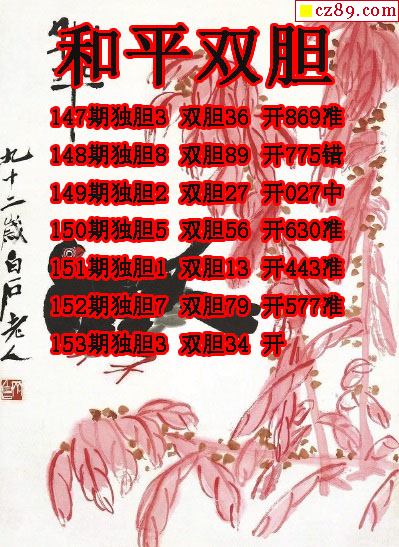 cz89.com
和平双胆
147期独胆3 双胆36 开869准
148期独胆8 双胆89 开775错
149期独胆2 双胆27 开027中
150期独胆5 双胆56 开630准
151期独胆1 双胆13 开443准
152期独胆7 双胆79 开577准
153期独胆3 双胆34 开
九十二岁白石老人